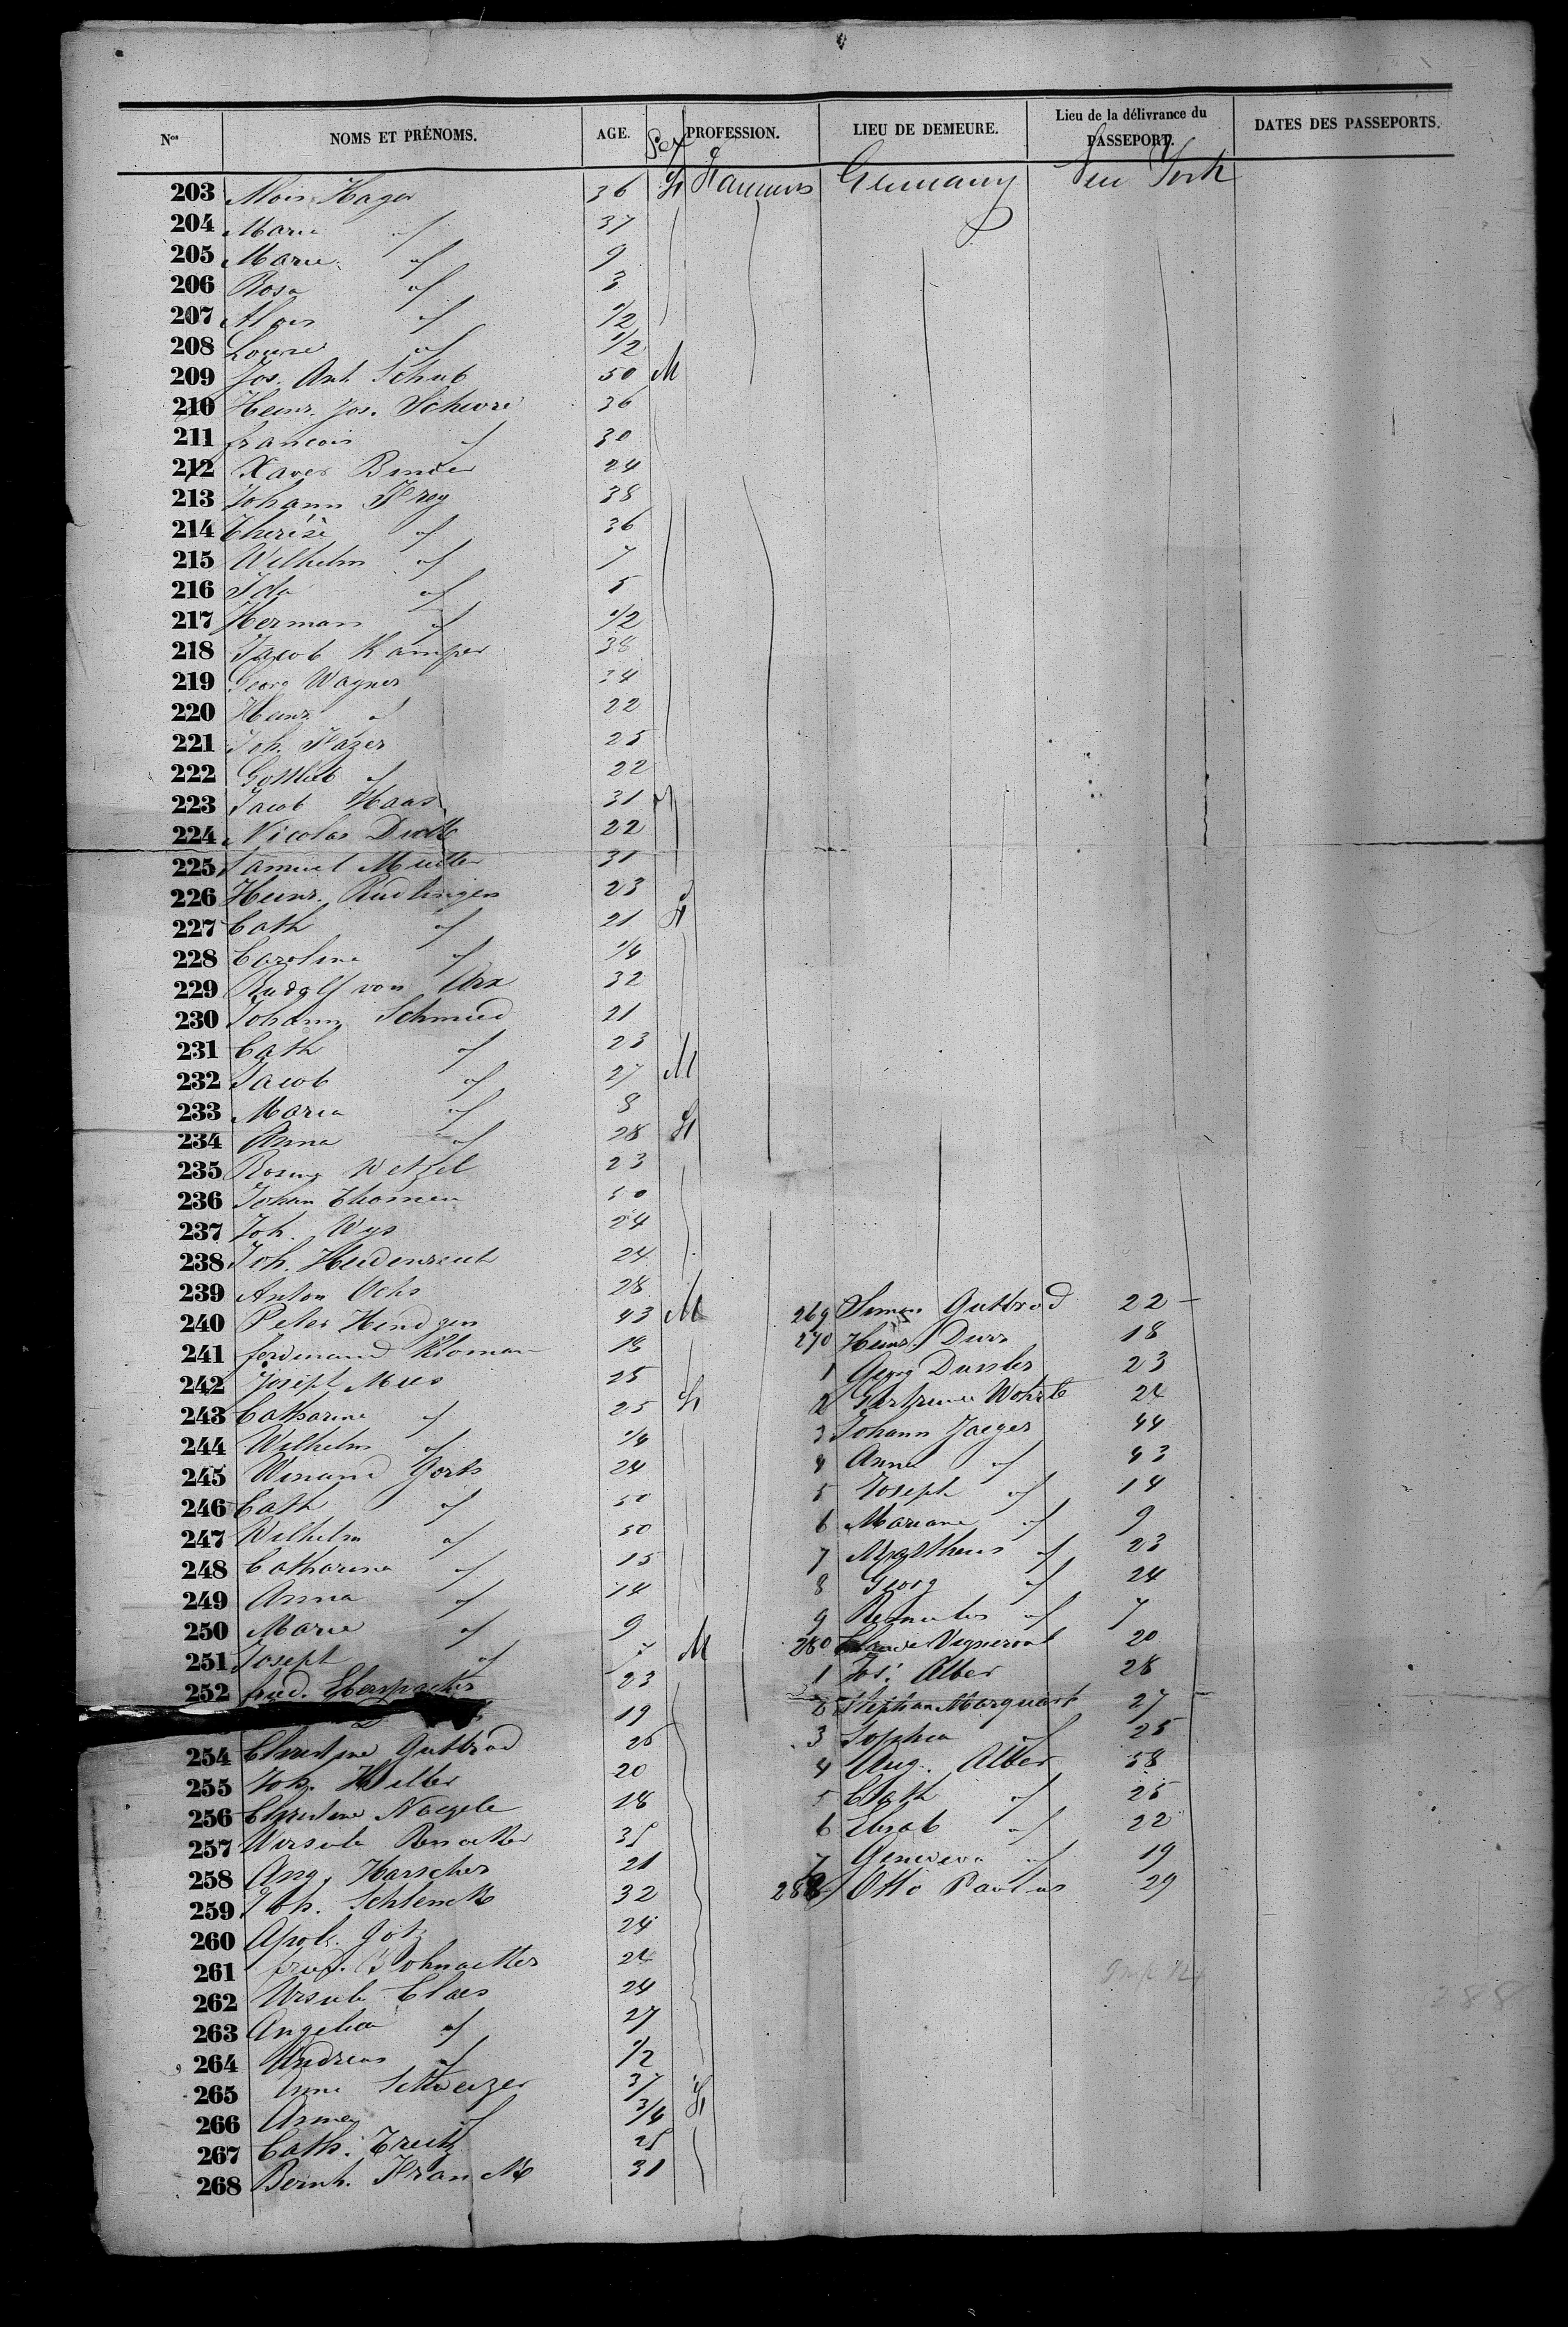 Nos NOMS ET PRÉNOMS. AGE. Sex PROFESSION. LIEU DE DEMEURE. Lieu de la délivrance du PASSEPORT. DATES DES PASSEPORTS.
203 Alois Hager 36 Farmers Germany New York
204 Marie " 37
205 Marie " 9
206 Rosa " 3
207 Alois " 1/2
208 Louise " 1/2
209 Jos. Ant Schub 50 M
210 Heinr. Jos. 36
211 francois " 30
212 Xaver Binder 24
213 Johann Frey 38
214 Therese " 36
215 Wilhelm " 7
216 Ida " 5
217 Herman " 1/2
218 Jacob Kamper 38
219 Georg Wagner 34
220 Heinr " 22
221 Joh. 25
222 Gottlieb " 22
223 Jacob Haas 31
224 Nicolas 22
225 Samuel Muller 31
226 Heinr. Rudlinger 23
227 Cath " 21
228 Caroline " 1/4
229 Rudolf von Arx 32
230 Johann Schmied 21
231 Cath " 23
232 Jacob " 27 M
233 Maria " 8
234 Anna " 28
235 Rosina Wetzel 23
236 Johan Thomen 50
237 Joh. Wys 24
238 Joh. Heidenreich 24
239 Anton Ochs 28
240 Peter Hendgen 43 M
241 ferdinand Kloman 18
242 Joseph Mies 25
243 Catharine " 25
244 Wilhelm " 1/4
245 Winand Gorts 24
246 Cath " 50
247 Wilhelm " 50
248 Catharina " 15
249 Anna " 14
250 Marie " 9
251 Joseph " 7 M
252 fried. Eberspacher 23
19
254 Christine Guttrod 25
255 Joh. Hilber 20
256 Christine Naegele 18
257 Ursula 35
258 Aug. Harscher 21
259 Joh. Schlenck 32
260 Apol. Gotz 24
261 24
262 Ursula Claes 24
263 Angelica " 27
264 Andreas " 1/2
265 Anna Schweizer 37
266 Anna " 3/4
267 Cath. Treitz 25
268 Bernh. Franck 31
269 Simon Guttrod 22
270 Heinr. Durr 18
1 Georg Dursler 23
2 24
3 Johann Jaeger 44
4 Anna " 43
5 Joseph " 14
6 Mariane " 9
7 Mattheus " 23
8 Georg " 24
9 " 7
280 20
1 Jos. Alber 28
2 Stephan Marquart 27
3 Sophia " 25
4 Aug. Alber 58
5 Cath " 25
6 Elisab " 22
7 Geneveva " 19
288 Otto Paulus 29
288